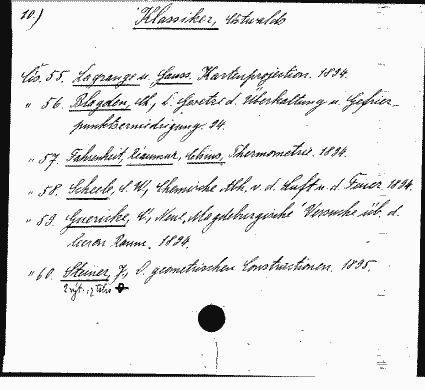 10.)
Klassiker, Ostwalds
Lis. 55. Lagrange u. Gauss, Kartenprojection. 1894.
" 56. Blagden, Ch., D. Gesetze d. Überkaltung u. Gefrier-
punktserniedrigung. 94.
" 57. Fahrenheit, Réaumur, Celsius, Thermometrie. 1894.
" 58. Scheele, C. W., Chemische Abh. v. d. Luft u. d. Feuer. 1894.
" 59. Guericke, O., Neue "Magdeburgische" Versuche üb. d.
leeren Raum. 1894.
" 60. Steiner, J., D. geometrischen Constructionen. 1895.